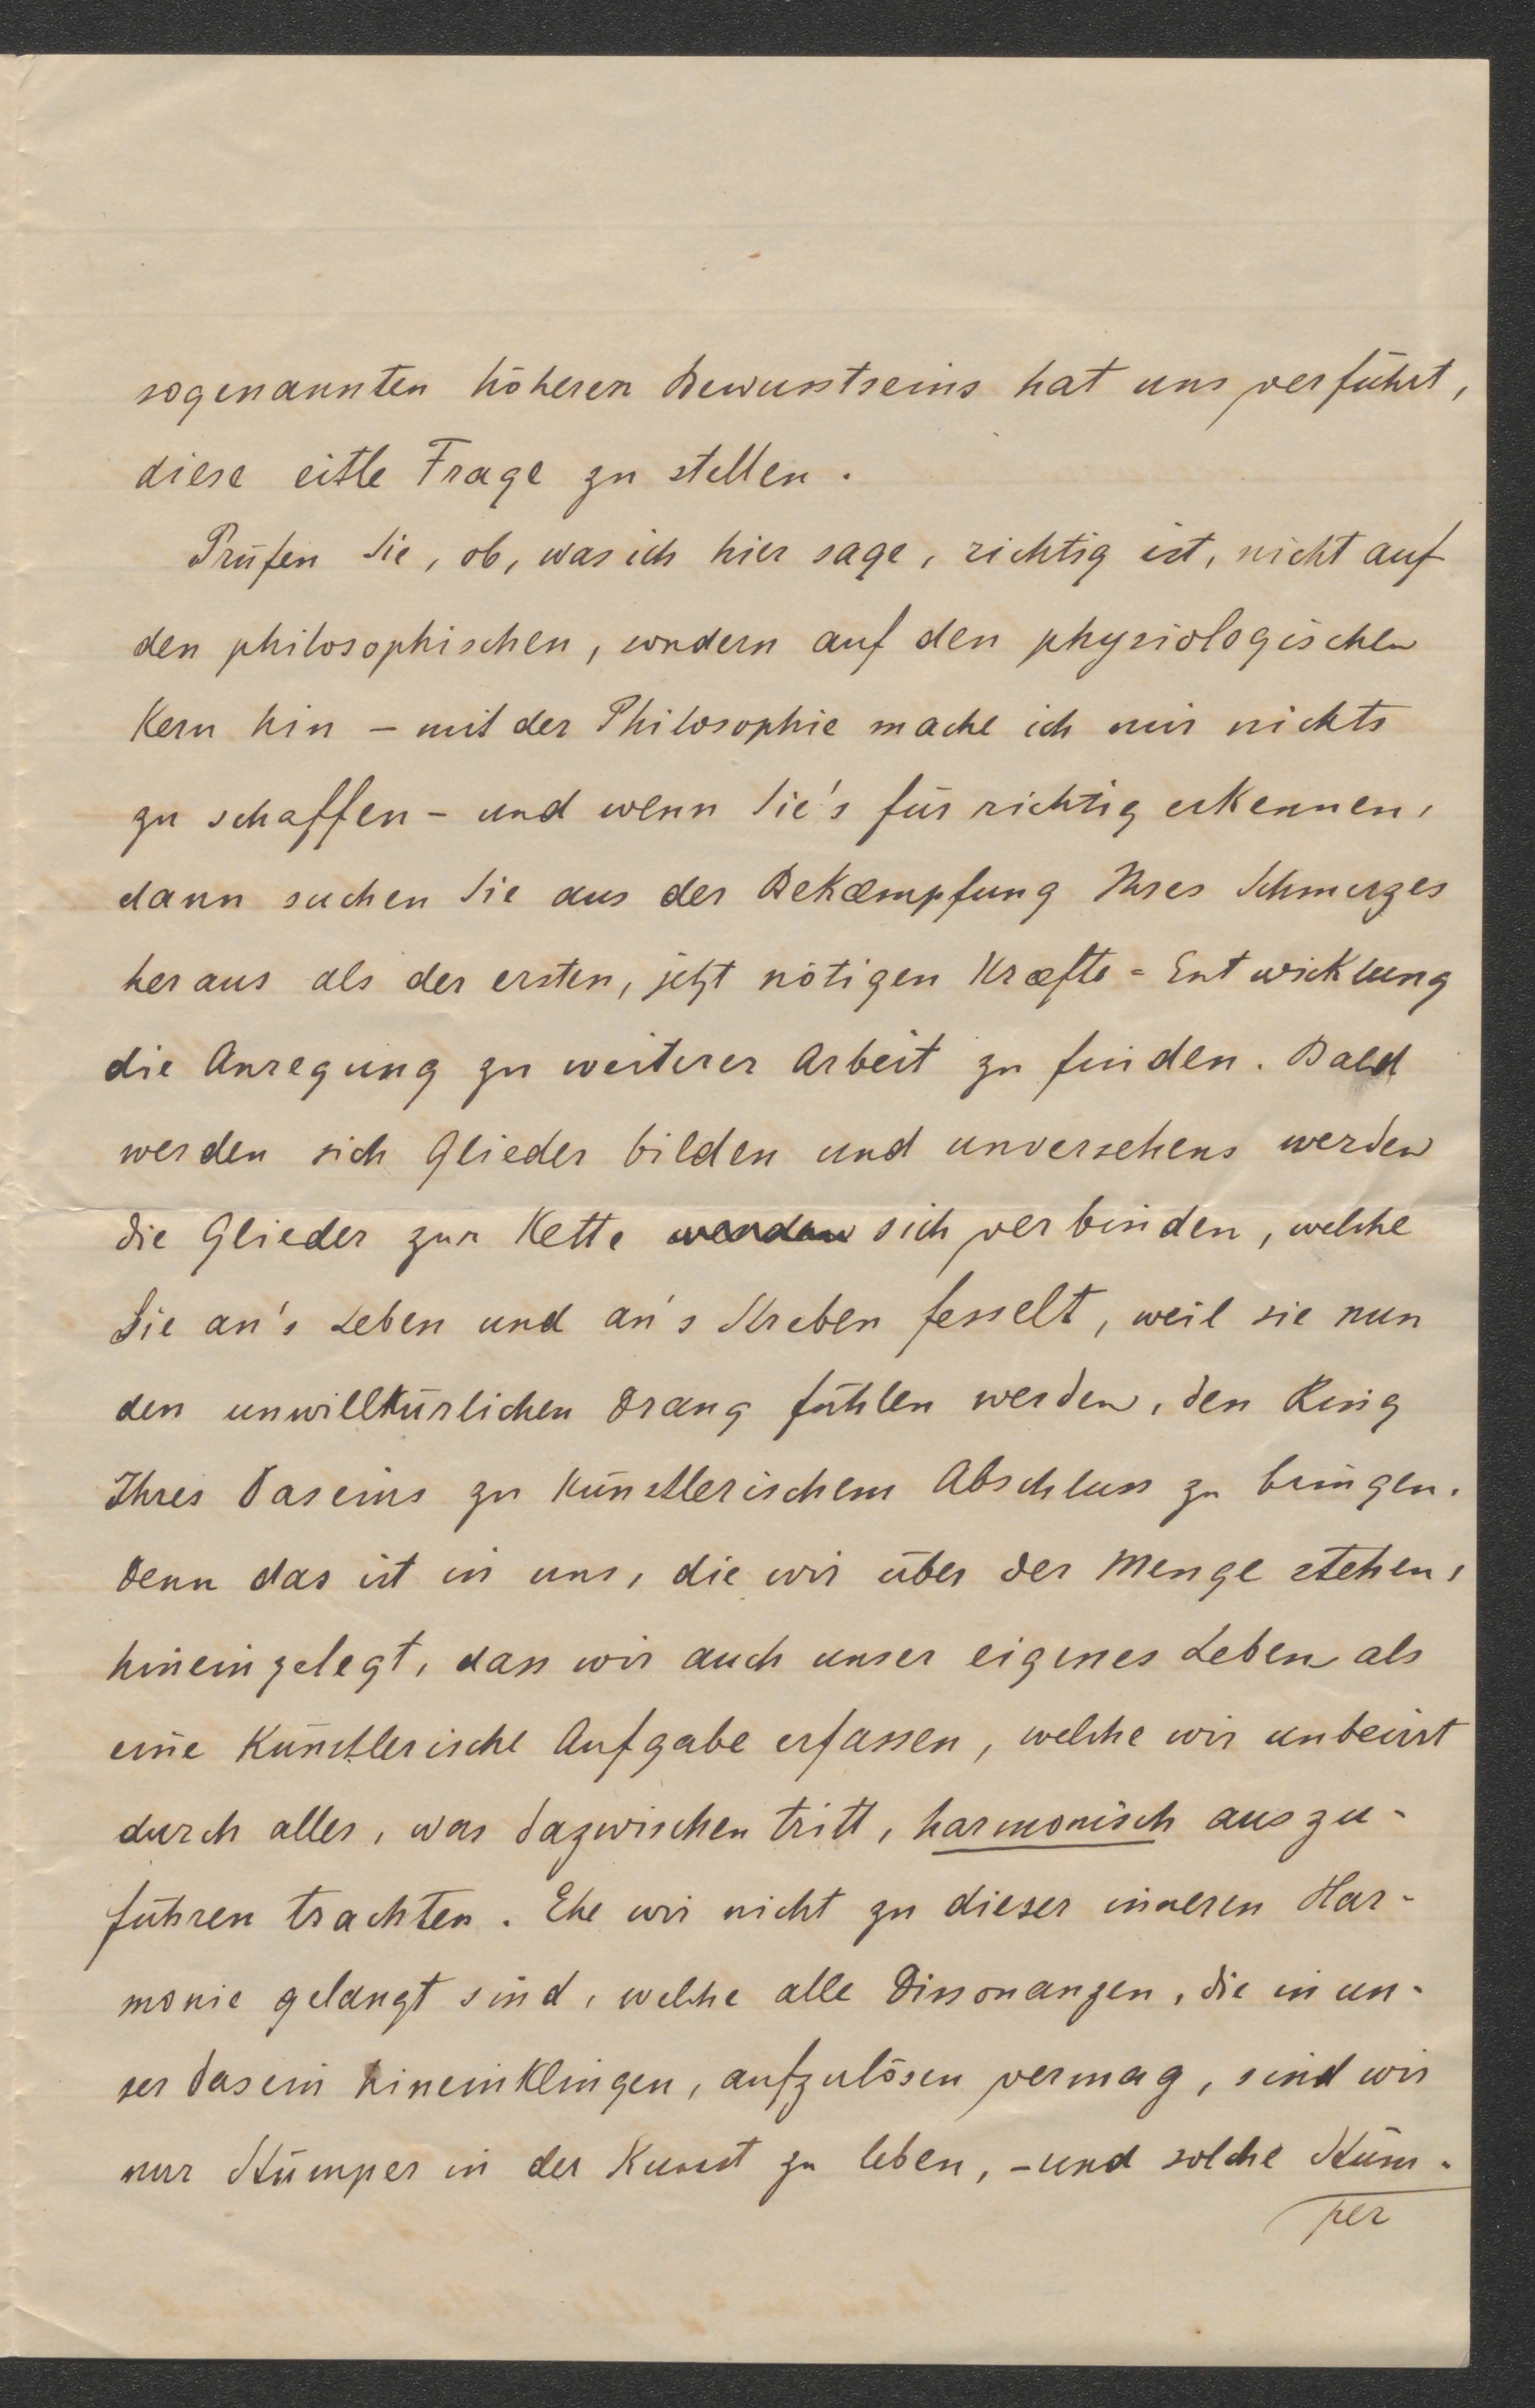 sogenannten höheren Bewusstseins hat uns verführt,
diese eitle Frage zu stellen.
Prüfen Sie, ob, was ich hier sage, richtig ist, nicht auf
den philosophischen, sondern auf den physiologischen
Kern hin – mit der Philosophie mache ich mir nichts
zu schaffen – und wenn Sie's für richtig erkennen,
dann suchen Sie aus der Bekæmpfung Ihres Schmerzes
heraus als der ersten, jetzt nötigen Kræfte=Entwicklung
die Anregung zu weiterer Arbeit zu finden. Bald
werden sich Glieder bilden und unversehens werden
die Glieder zur Kette werden sich verbinden, welche
Sie an's Leben und an's Streben fesselt, weil sie nun
den unwillkürlichen Drang fühlen werden, den Ring
Ihres Daseins zu künstlerischem Abschluss zu bringen.
Denn das ist in uns, die wir über der Menge stehen,
hineingelegt, dass wir auch unser eigenes Leben als
eine künstlerische Aufgabe erfassen, welche wir unbeirrt
durch alles, was dazwischen tritt, harmonisch auszu-
führen trachten. Ehe wir nicht zu dieser inneren Har-
monie gelangt sind, welche alle Dissonanzen, die in un-
ser Dasein hineinklingen, aufzulösen vermag, sind wir
nur Stümper in der Kunst zu leben, – und solche Stüm-
per